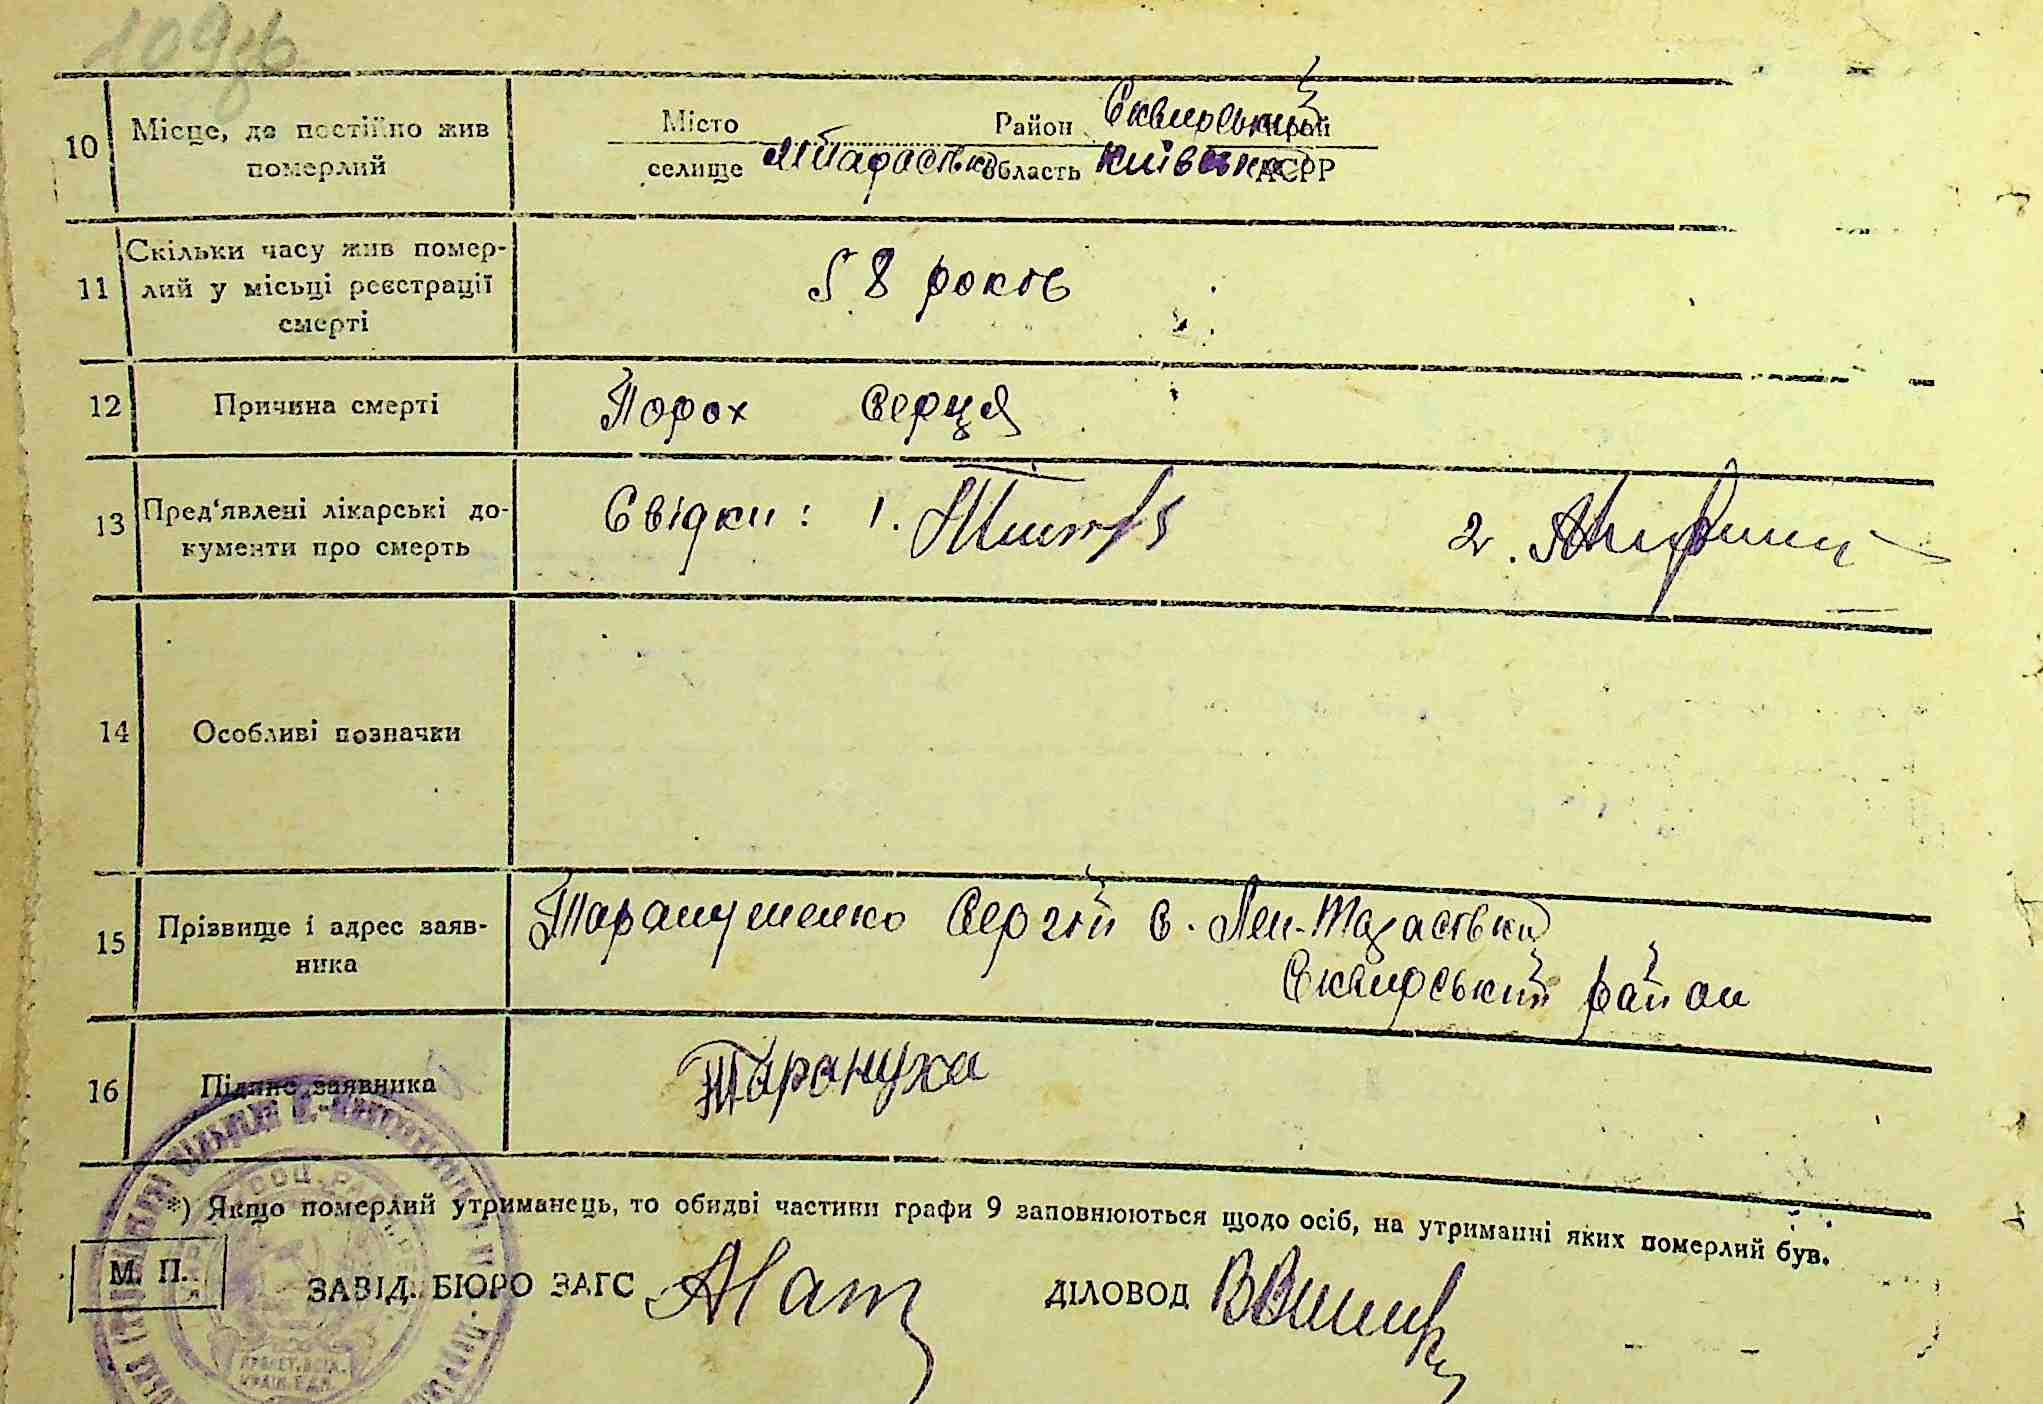 109зв
10 Місце, де постійно жив
померлий
Місто Район Сквирський край
селище Тарасівка область Київська АСРР
11 Скільки часу жив помер-
лий у місьці реєстрації
смерті
58 років
12 Причина смерті
Порох серця
13 Пред'явлені лікарські до-
кументи про смерть
Свідки: 1. 2.
14 Особливі позначки
15 Прізвище і адрес заяв-
ника
Таранушенко Сергій с. Пен-Тарасівка
Сквирський район
16 Підпис заявника
Тарануха
*) Якщо померлий утриманець, то обидві частини графи 9 заповнюються щодо осіб, на утриманні яких померлий був.
М. П.
ЗАВІД. БЮРО ЗАГС
ДІЛОВОД